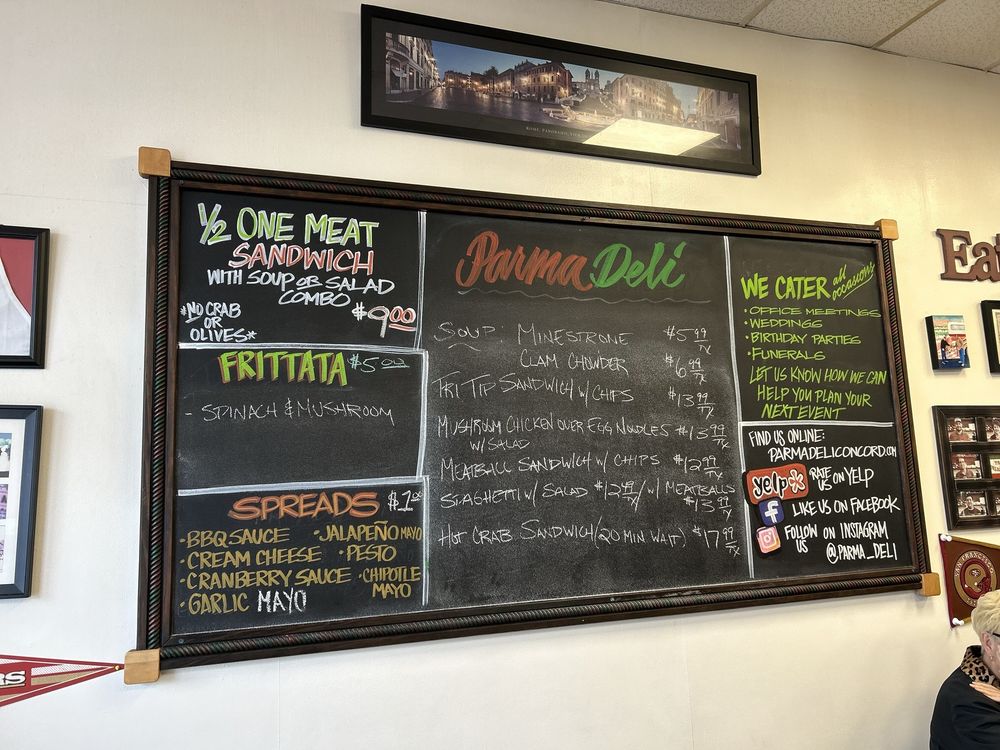 ½ ONE MEAT
SANDWICH
WITH SOUP OR SALAD
COMBO
$9.00
*NO CRAB
OR
OLIVES*
FRITTATA $5.00
- SPINACH & MUSHROOM
SPREADS $1.00
• BBQ SAUCE • JALAPEÑO MAYO
• CREAM CHEESE • PESTO
• CRANBERRY SAUCE • CHIPOTLE
MAYO
• GARLIC MAYO
Parma Deli
SOUP: MINESTRONE $5.99 TX
CLAM CHOWDER $6.99 TX
TRI TIP SANDWICH W/ CHIPS $13.99 TX
MUSHROOM CHICKEN OVER EGG NOODLES $13.99 TX
W/ SALAD
MEATBALL SANDWICH W/ CHIPS $12.99 TX
SPAGHETTI W/ SALAD $12.49 TX / W/ MEATBALLS
$13.99 TX
HOT CRAB SANDWICH (20 MIN WAIT) $17.99 TX
WE CATER all
occasions
• OFFICE MEETINGS
• WEDDINGS
• BIRTHDAY PARTIES
• FUNERALS
LET US KNOW HOW WE CAN
HELP YOU PLAN YOUR
NEXT EVENT
FIND US ONLINE:
PARMADELICONCORD.COM
yelp RATE
US ON YELP
f LIKE US ON FACEBOOK
FOLLOW ON INSTAGRAM
US @PARMA_DELI
Eat
SAN FRANCISCO
RS